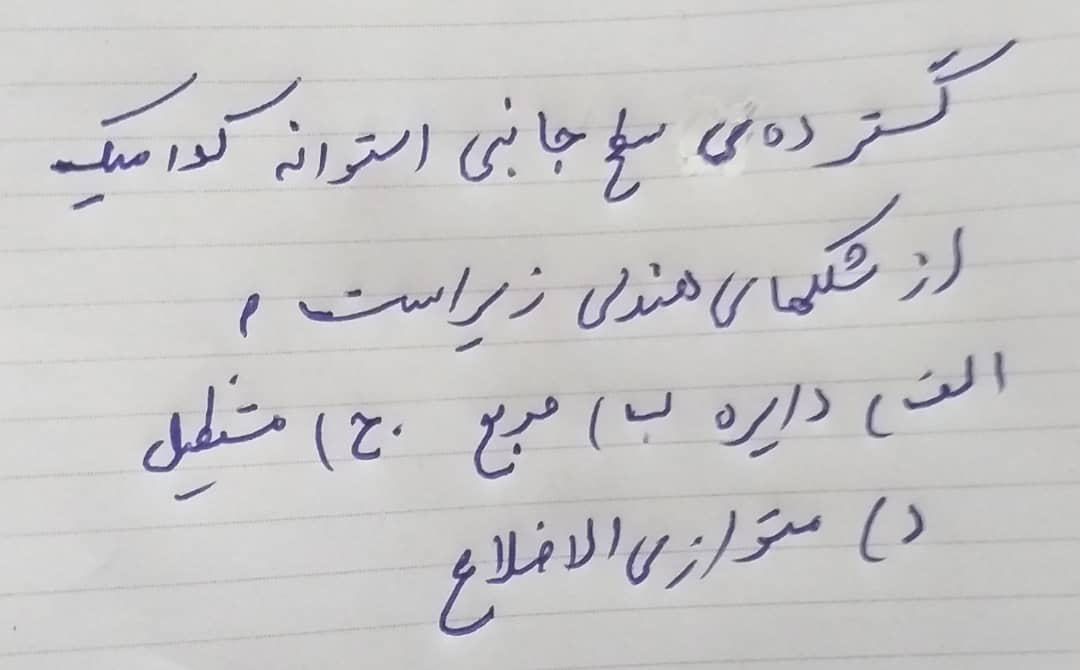 گسترده ی سطح جانبی استوانه کدامیک
از شکلهای هندسی زیر است ؟
الف) دایره ب) مربع ج) مستطیل
د) متوازی الاضلاع